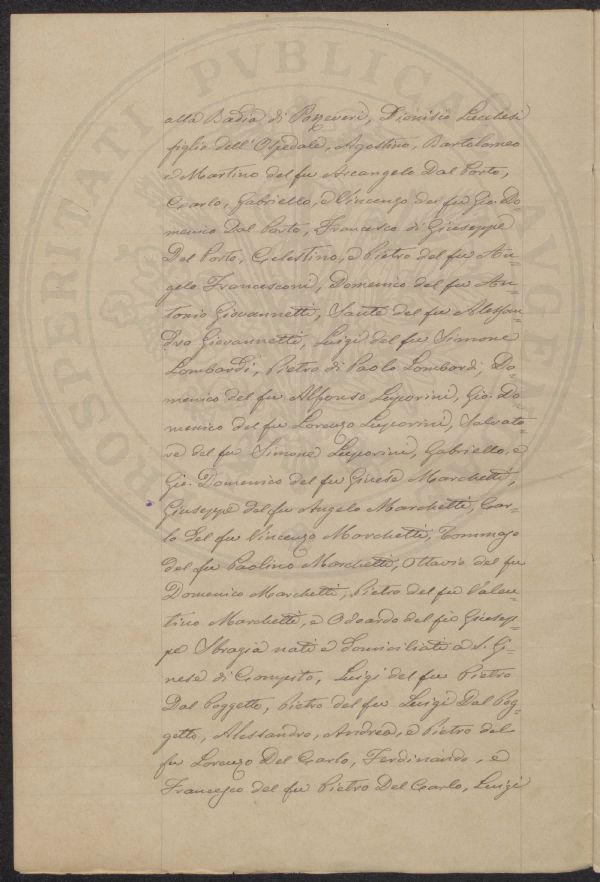 PROSPERITATI PVBLICAE AVGENDAE
alla Badia di Pozzeveri, Dionisio Lucchesi
figlio dell'Ospedale, Agostino, Bartolomeo
e Martino del fu Arcangelo Dal Porto,
Carlo, Gabriello, e Vincenzo del fu Gio: Do=
menico Dal Porto, Francesco di Giuseppe
Del Porto, Celestino, e Pietro del fu An=
gelo Francesconi, Domenico del fu An=
tonio Giovannetti, Sante del fu Alessan=
dro Giovannetti, Luigi del fu Simone
Lombardi, Pietro di Paolo Lombardi, Do=
menico del fu Alfonso Luporini, Gio: Do=
menico del fu Lorenzo Luporini, Salvato=
re del fu Simone Luporini, Gabriello, e
Gio: Domenico del fu Marchetti,
Giuseppe del fu Angelo Marchetti, Car=
lo del fu Vincenzo Marchetti, Tommaso
del fu Paolino Marchetti, Ottavio del fu
Domenico Marchetti, Pietro del fu Valen=
tino Marchetti, e Odoardo del fu Giusep=
pe Sbragia nati e domiciliati a S. Gi=
nese di Compito, Luigi del fu Pietro
Dal Poggetto, Pietro del fu Luigi Dal Pog=
getto, Alessandro, Andrea, e Pietro del
fu Lorenzo Del Carlo, Ferdinando, e
Francesco del fu Pietro Del Carlo, Luigi